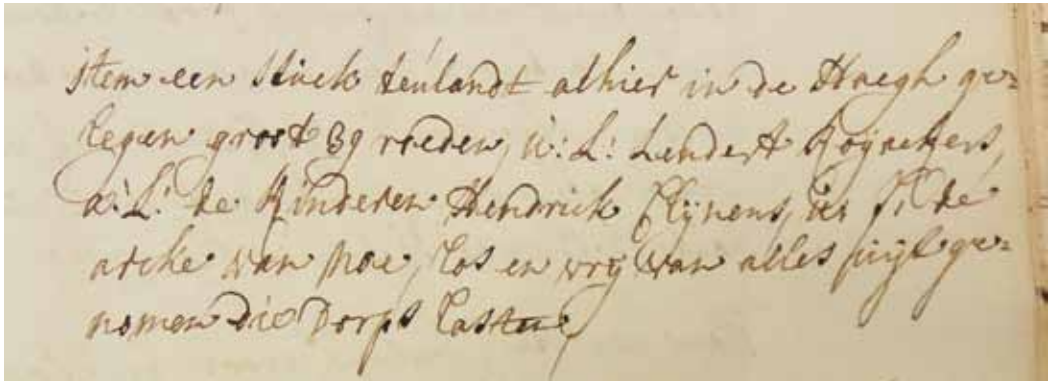 item een stuck teulandt alhier in de Haegh ge=
legen groot 89 roeden, w: L: Lendert Roijackers,
a: L: de Kinderen Hendrick Clijnens, de
arcke van noe, los en vrij van alles uijt ge=
nomen die Dorps Lasten,